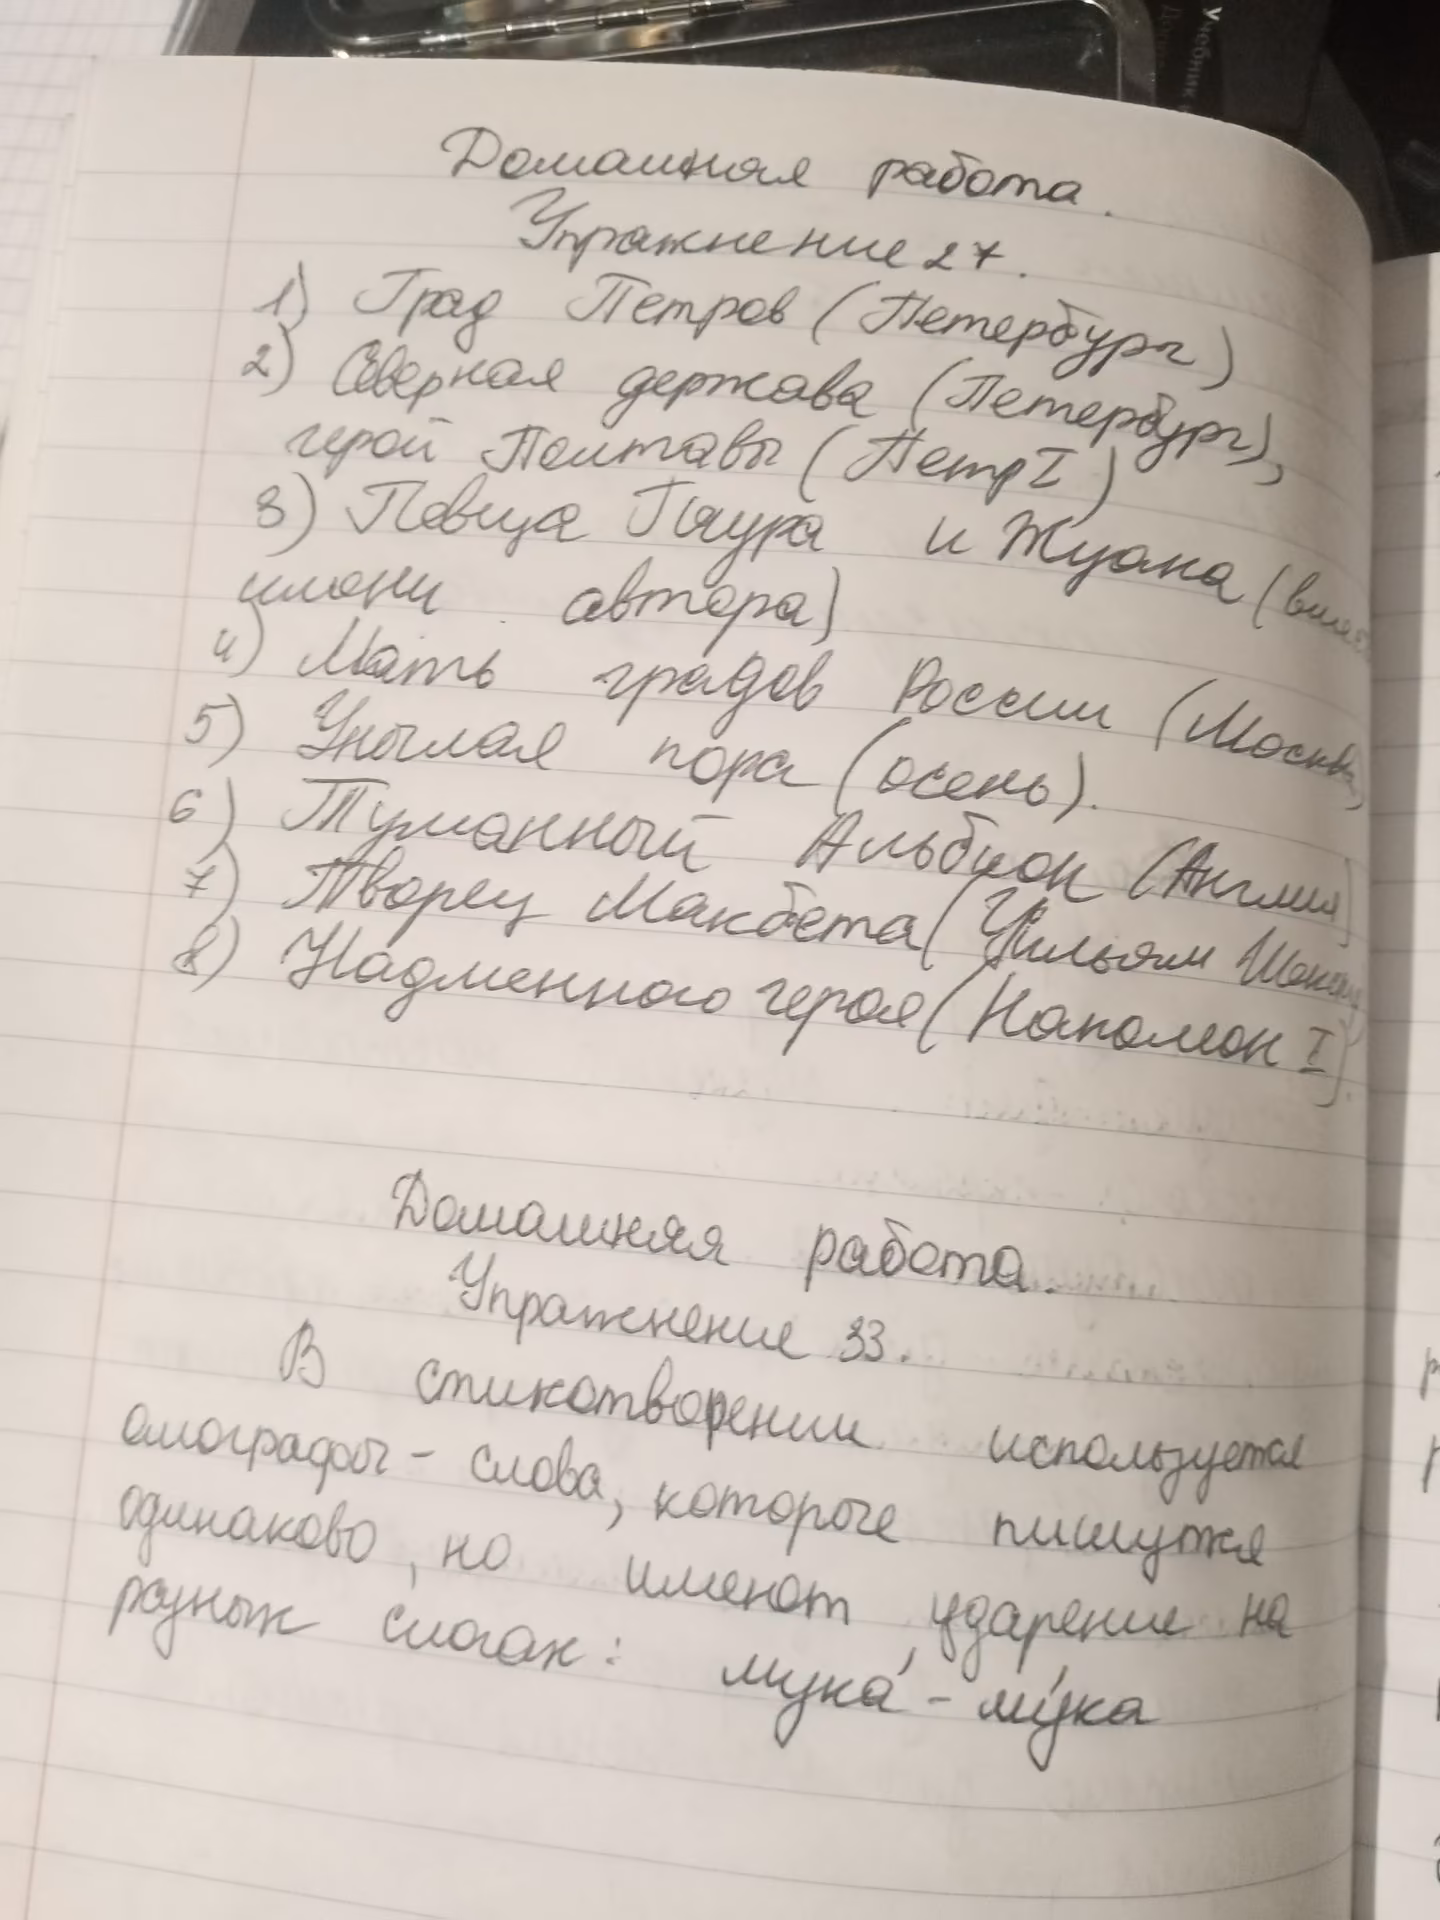 Учебник
Домашная работа.
Упражнение 27.
1) Град Петров (Петербург)
2) Северная держава (Петербург),
герой Полтавы (Петр I)
3) Певца Гяура и Жуана (вмест
имени автора)
4) Мать градов России (Москва)
5) Унылая пора (осень).
6) Туманный Альбион (Англия)
7) Творец Макбета (Уильям
8) Надменного героя (Наполеон I).
Домашняя работа.
Упражнение 33.
В стихотворении используется
омографы - слова, которые пишутся
одинаково, но имеют ударение на
разных слогах: мука́ - му́ка